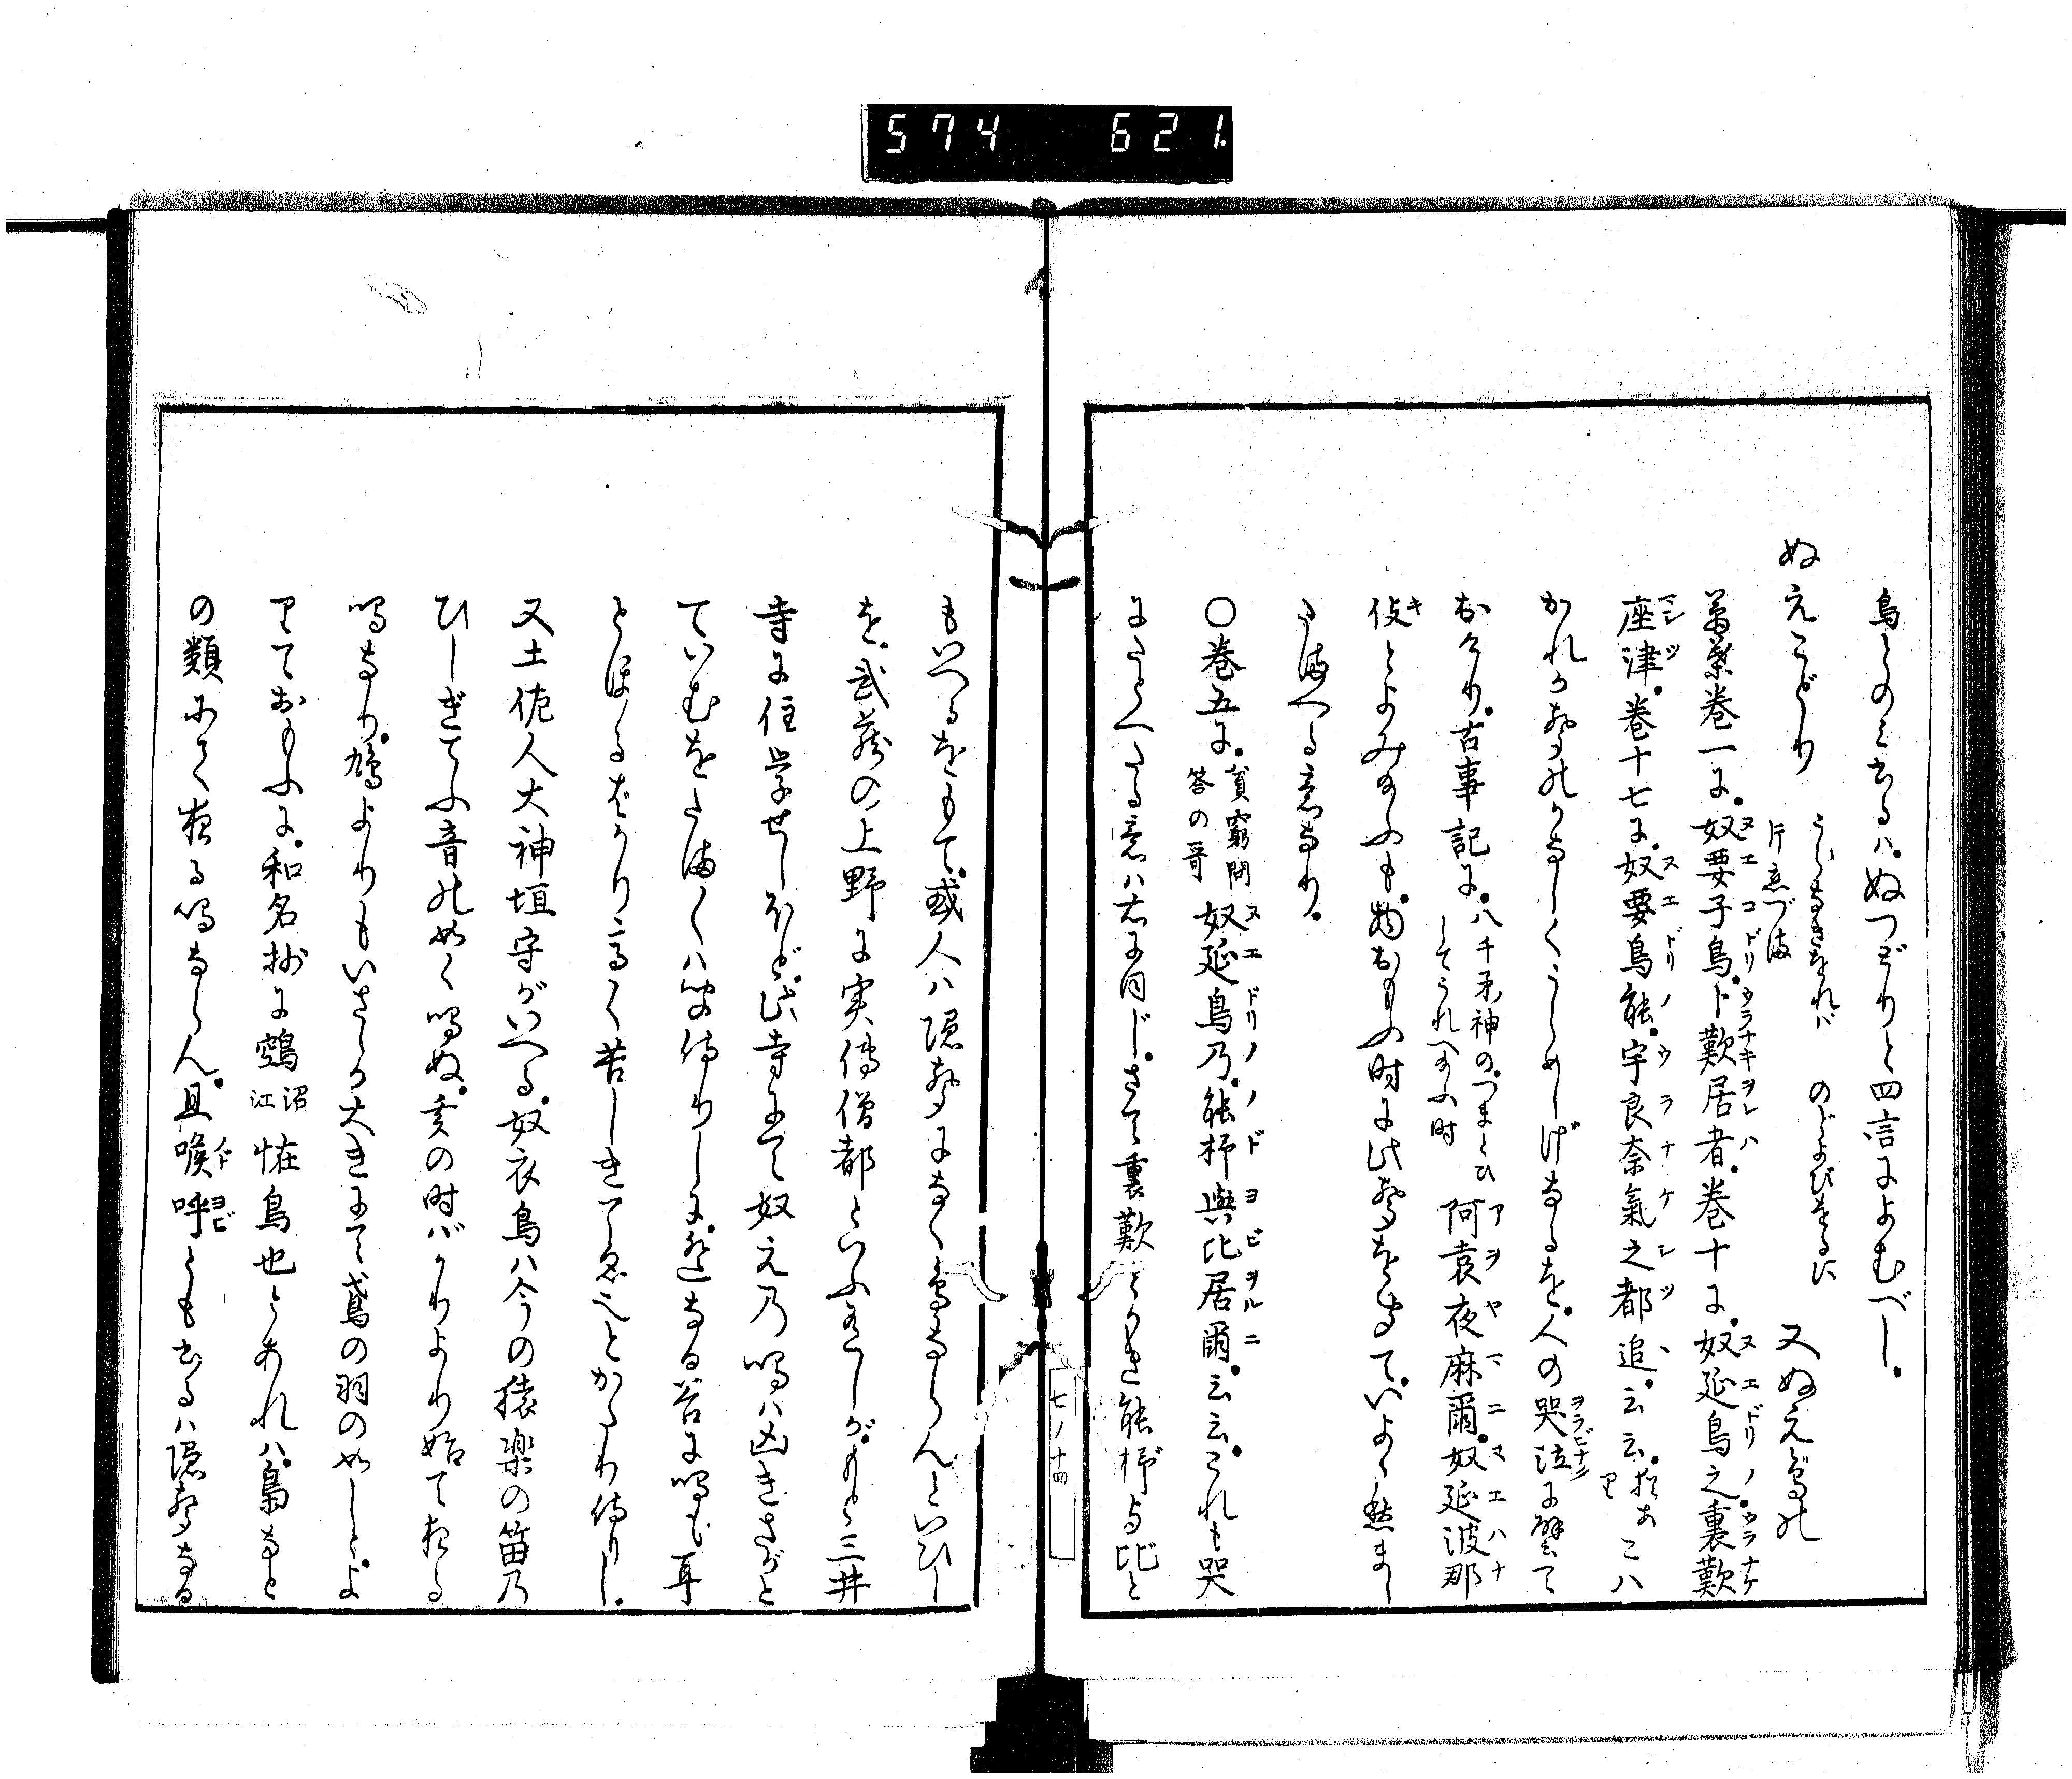 574 621
鳥とのミあるハ。ぬつどりと四言によむべし。
ぬえこどり うらなきをれバ 片恋づま のどよびをるに 又ぬえどりの
萬葉巻一に。奴要子鳥。卜歎居者。巻十に。奴延鳥之裏歎
座津。巻十七に。奴要鳥能。宇良奈氣之都追。云云。
かれが聲のかなしくうらめしげなるを。人の哭泣に譬て
おけり。古事記に。八千矛神の。つまとひしてうれへ給ふ時 阿袁夜麻爾。奴延波那
伎とよみ給ふも。物おもふ時に此聲をきゝて。いよゝ愁まし
たまへる意なり。
〇巻五に。貧窮問答の哥 奴延鳥乃。能杼與比居爾。云云。これも哭
にたとへたる意ハ右に同じ。さて裏歎とかき能杼与比と
七ノ十四
もいへるをもて。或人ハ隠聲になく鳥ならんといひし
を。武蔵の上野に実傳僧都といふありしが。もと三井
寺に住学せしほど。此寺にて奴え乃鳴ハ凶きさがと
ていむをたまくハ聞侍りしに。遠なる谷に鳴も耳
とほるばかり高く苦しきこゑ也とかたり侍りし。
又土佐人大神垣守がいへる。奴衣鳥ハ今の猿楽の笛乃
ひしぎてふ音の如く鳴ぬ。亥の時バかりより始て夜る
鳴なり。鳩よりもいさゝか大きにて鳶の羽の如しとよ
りておもふに。和名抄に鵼 沼江 恠鳥也とあれハ。梟など
の類にて夜る鳴ならん。且喉呼ともあるハ隠聲なる